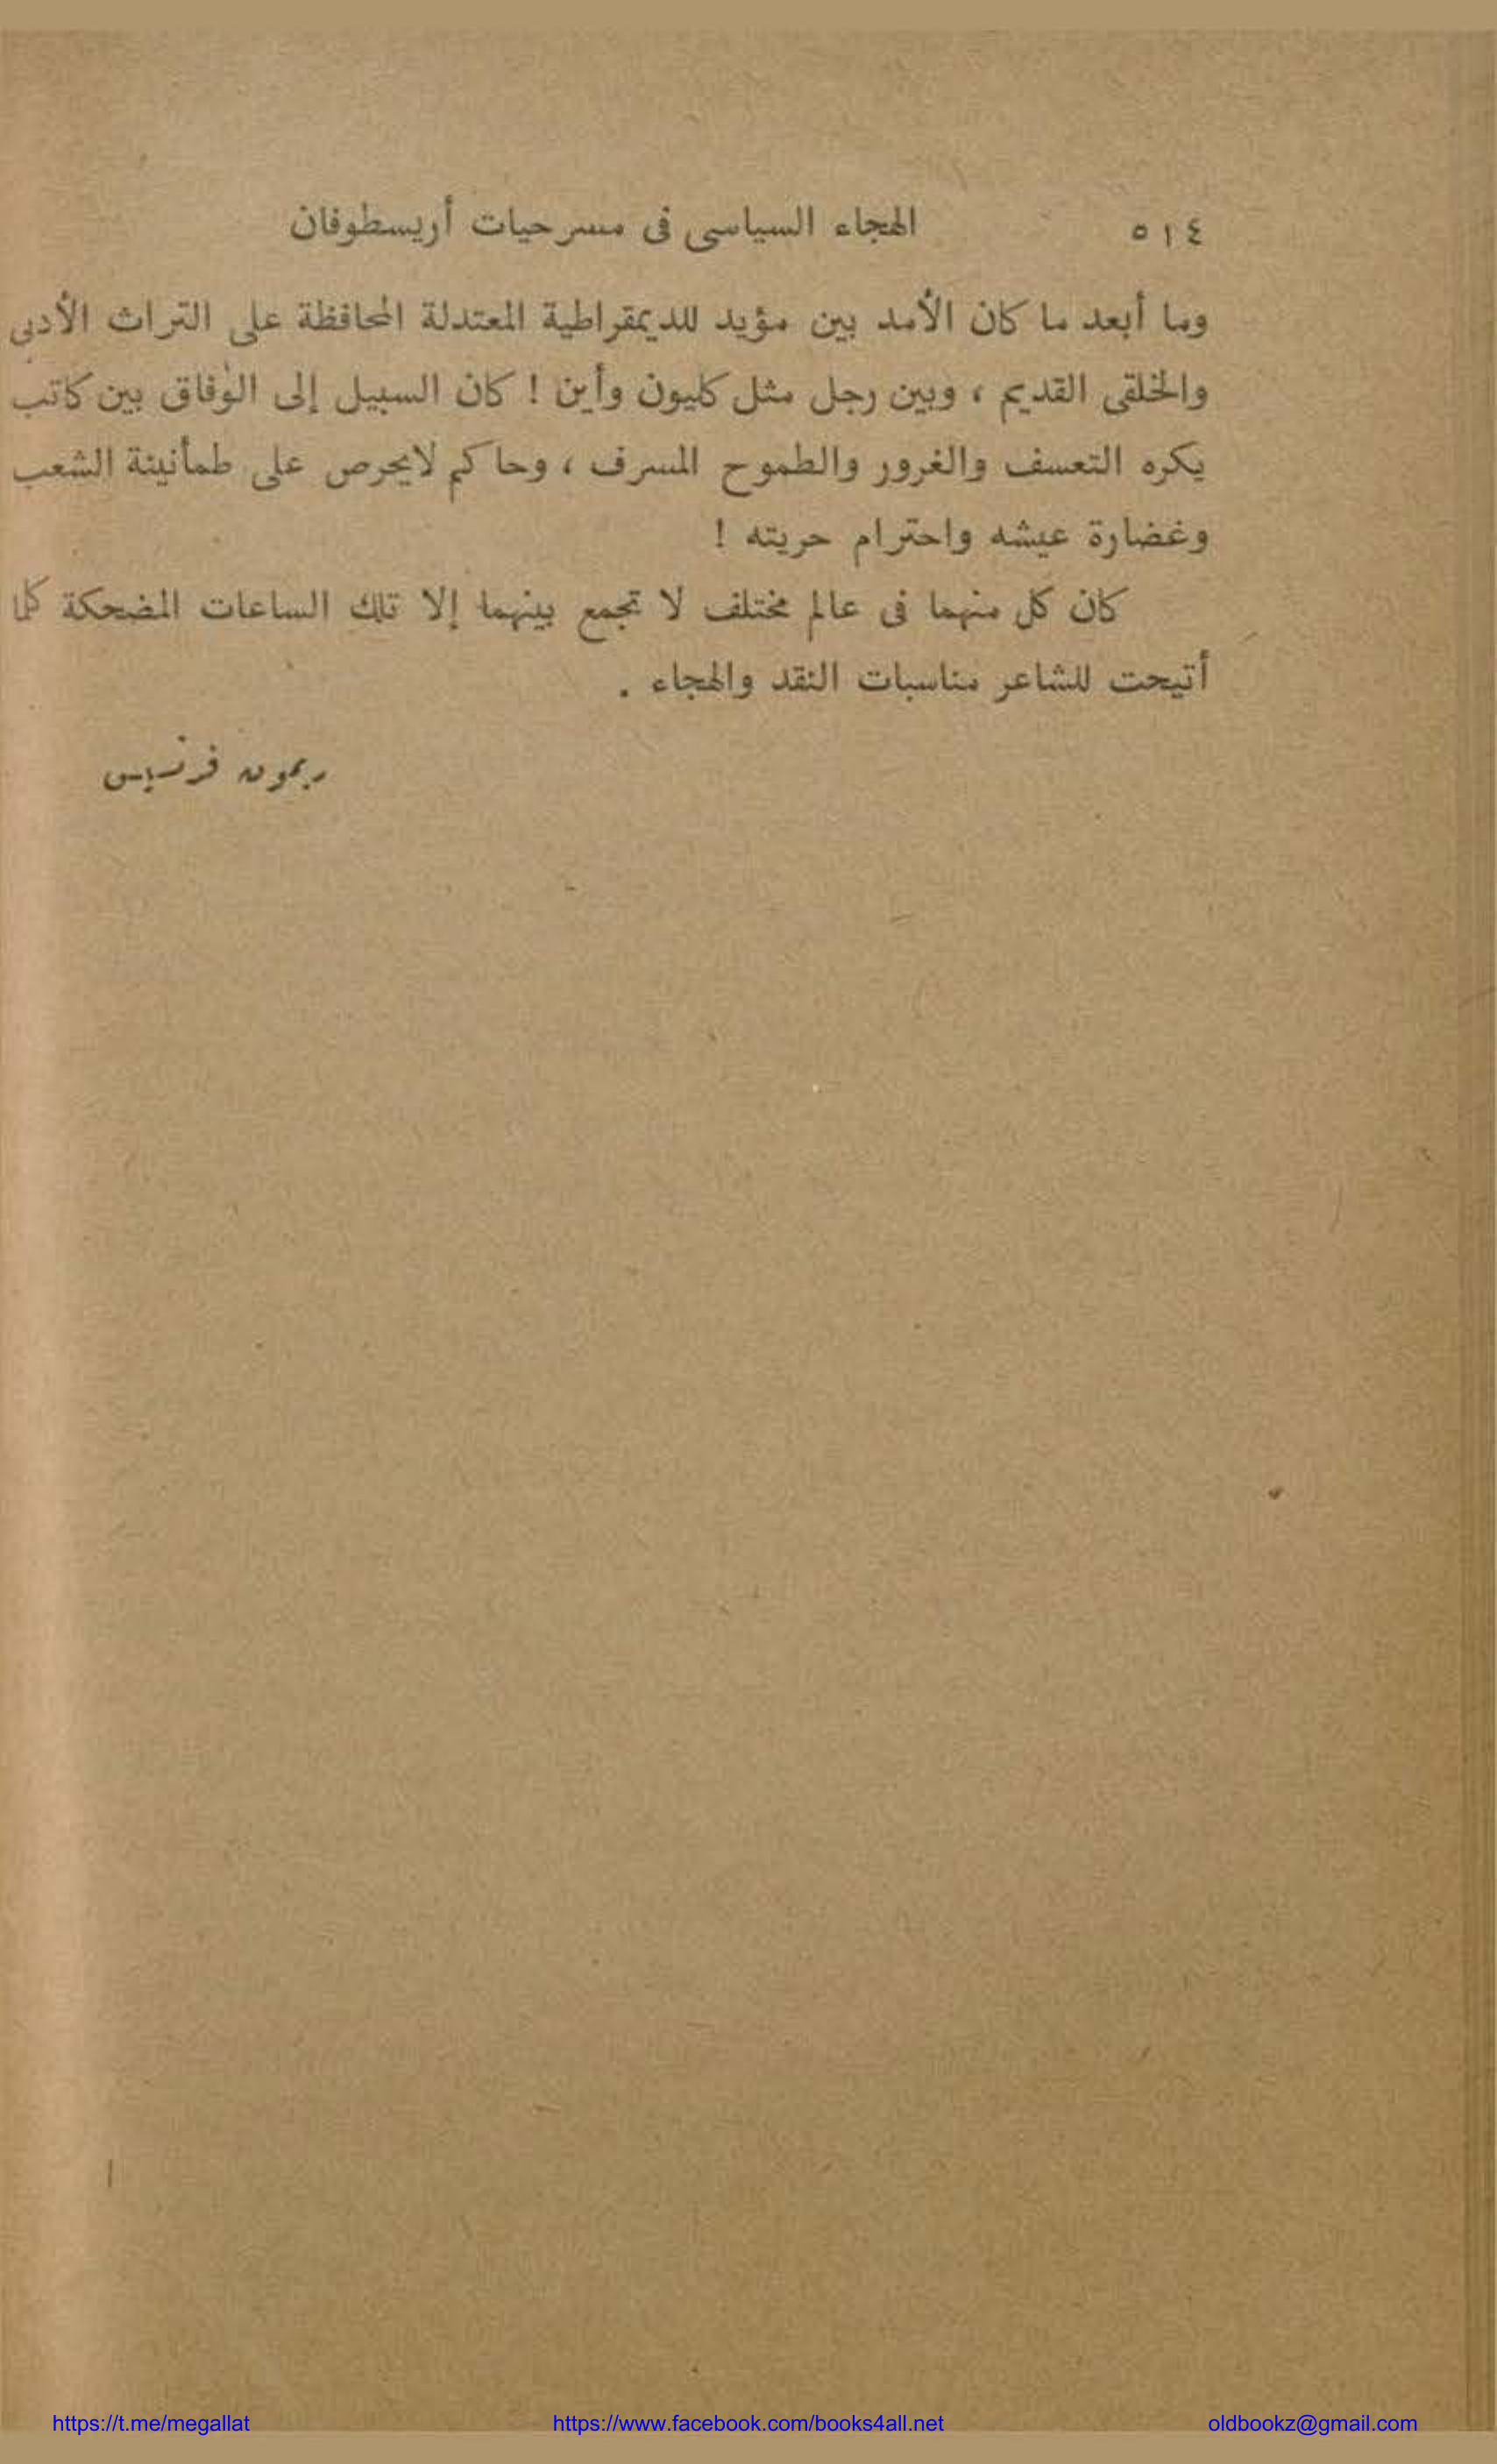 ٥١٤ الهجاء السياسى فى مسرحيات أريسطوفان
وما أبعد ما كان الأمد بين مؤيد للديمقراطية المعتدلة المحافظة على التراث الأدبى
والخلقى القديم ، وبين رجل مثل كليون وأين ! كان السبيل إلى الوفاق بين كاتب
يكره التعسف والغرور والطموح المسرف ، وحاكم لايحرص على طمأنينة الشعب
وغضارة عيشه واحترام حريته !
كان كل منهما فى عالم مختلف لا تجمع بينهما إلا تلك الساعات المضحكة كلما
أتيحت للشاعر مناسبات النقد والهجاء .
ريمون فرنسيس
https://t.me/megallat https://www.facebook.com/books4all.net oldbookz@gmail.com